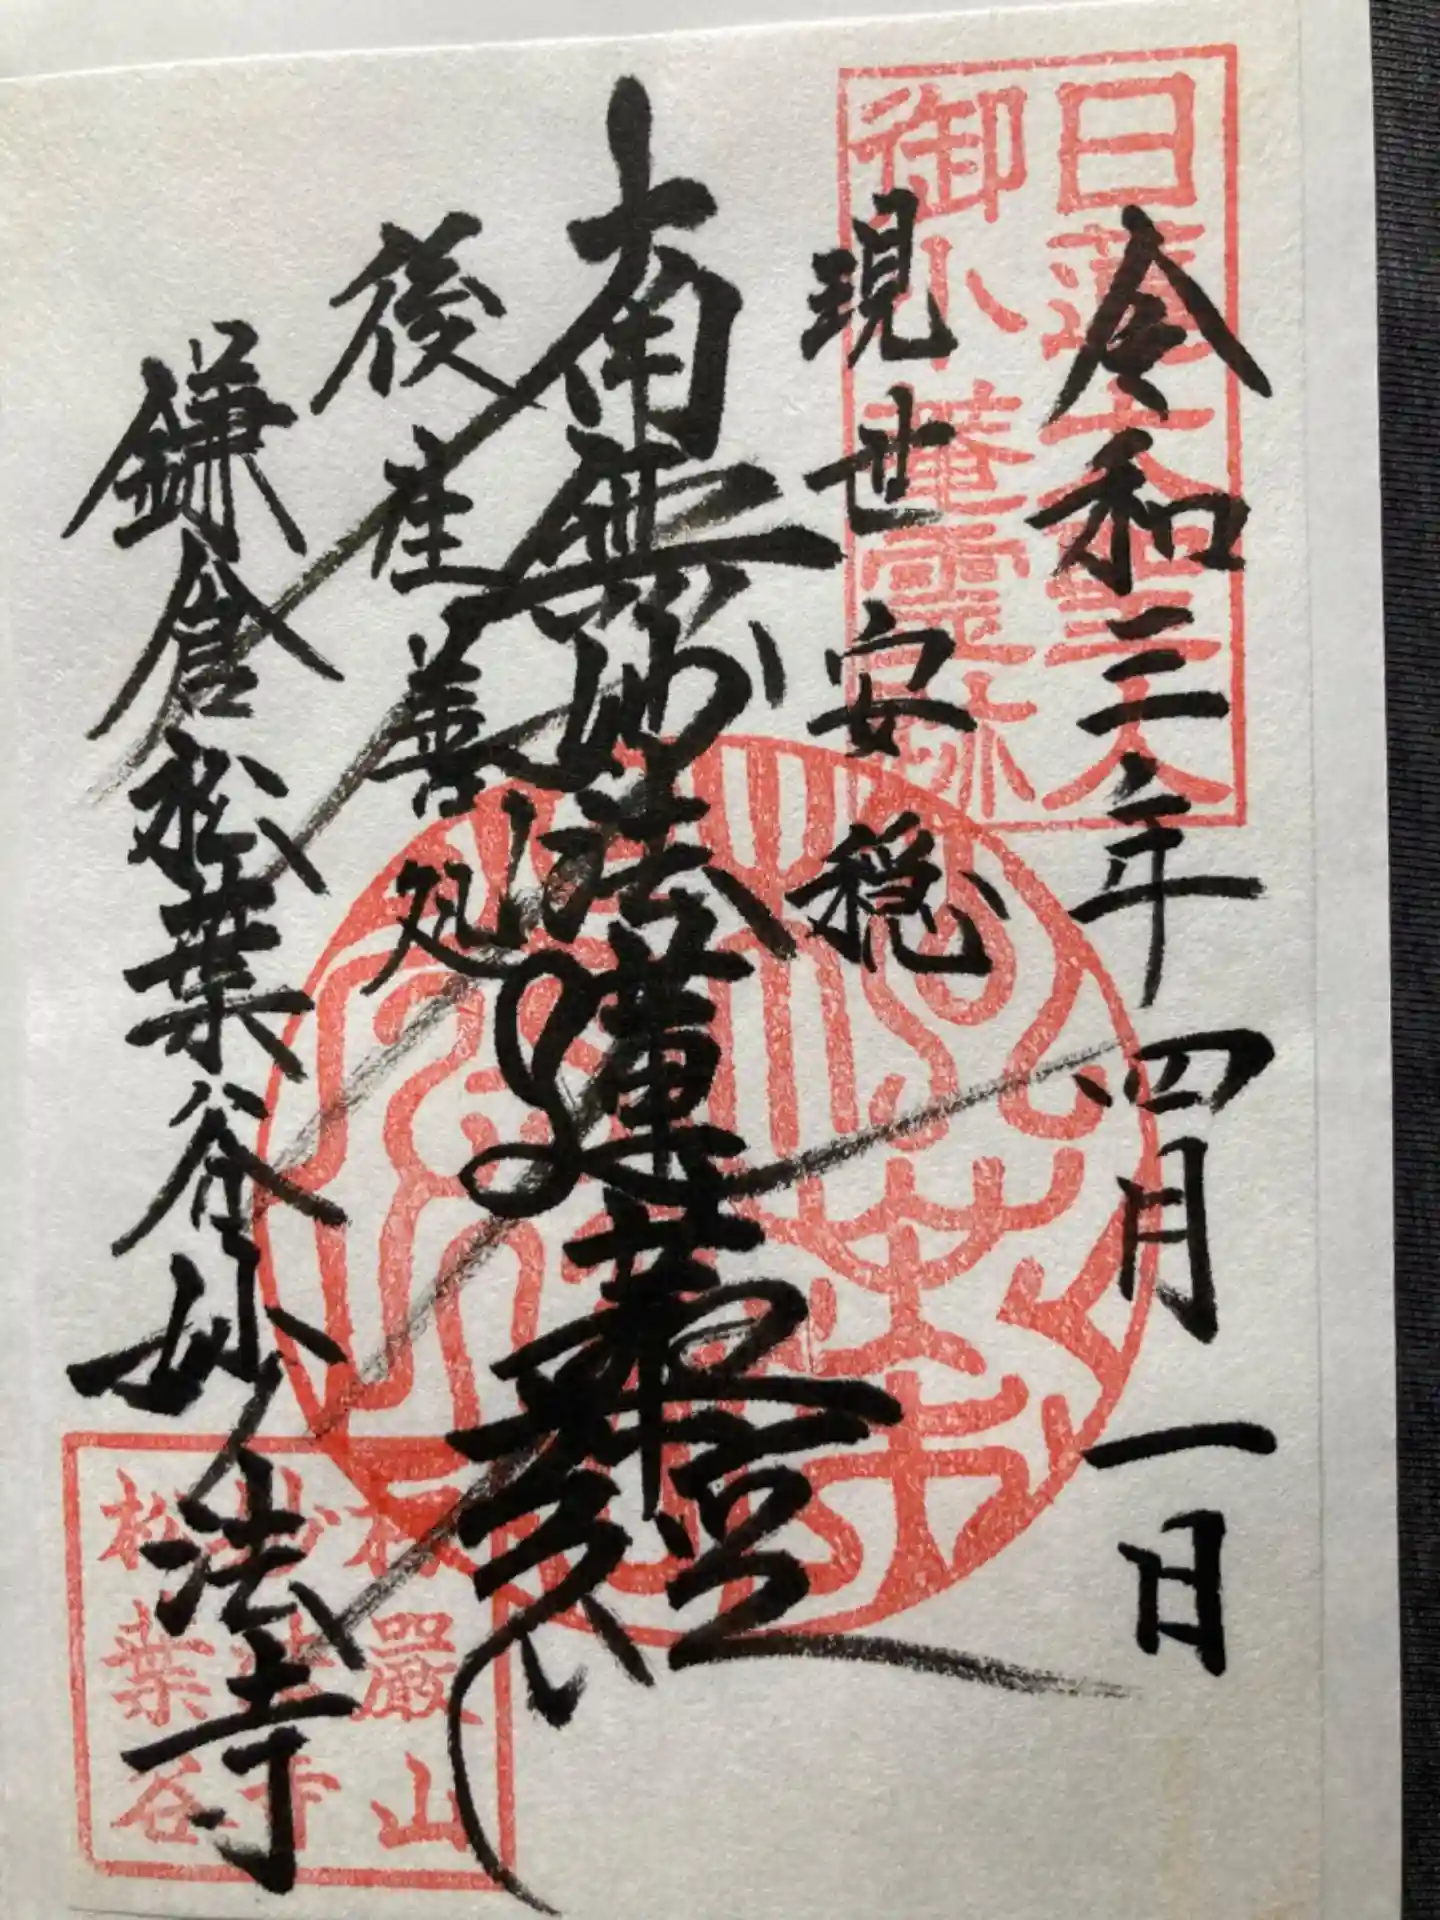 令和三年四月一日
現世安穏
南無妙法蓮華經
後生善処
鎌倉松葉谷妙法寺
日蓮大聖人
御小菴霊跡
楞厳山
妙法寺
松葉谷